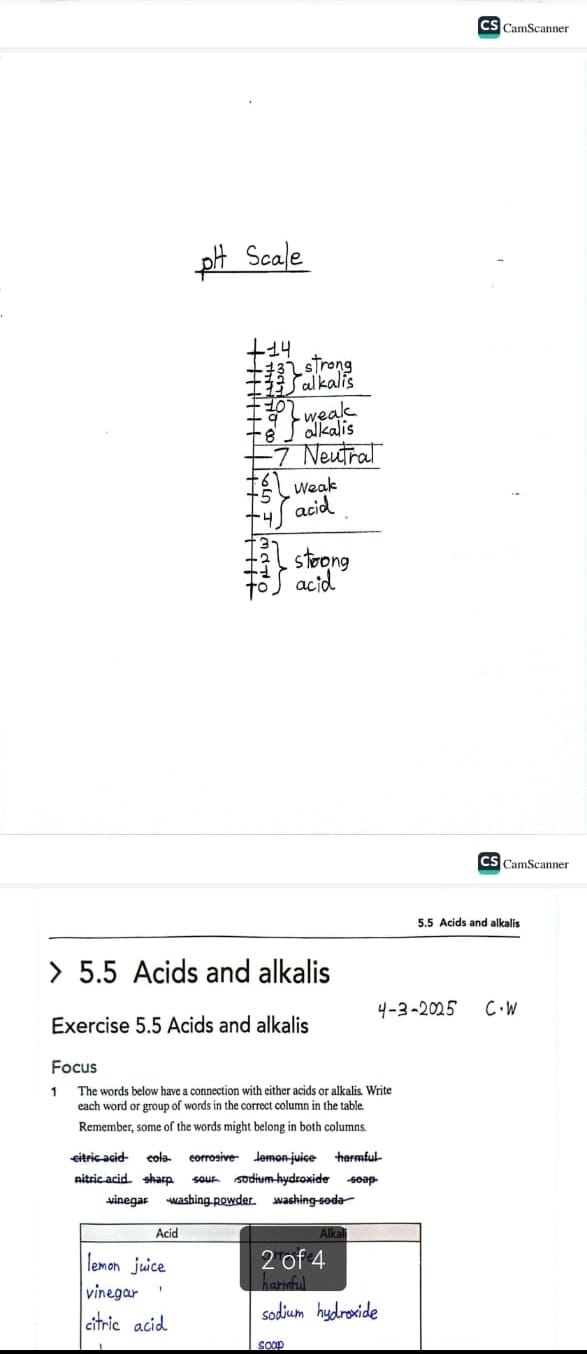 CS CamScanner
pH Scale
14
13
12
11
strong
alkalis
10
9
8
weak
alkalis
7 Neutral
6
5
4
weak
acid
3
2
1
0
strong
acid
CS CamScanner
5.5 Acids and alkalis
> 5.5 Acids and alkalis
4-3-2025 C.W
Exercise 5.5 Acids and alkalis
Focus
1 The words below have a connection with either acids or alkalis. Write
each word or group of words in the correct column in the table.
Remember, some of the words might belong in both columns.
citric acid cola corrosive lemon juice harmful
nitric acid sharp sour sodium hydroxide soap
vinegar washing powder washing soda
Acid Alkali
2 of 4
lemon juice
vinegar harmful
citric acid sodium hydroxide
soap